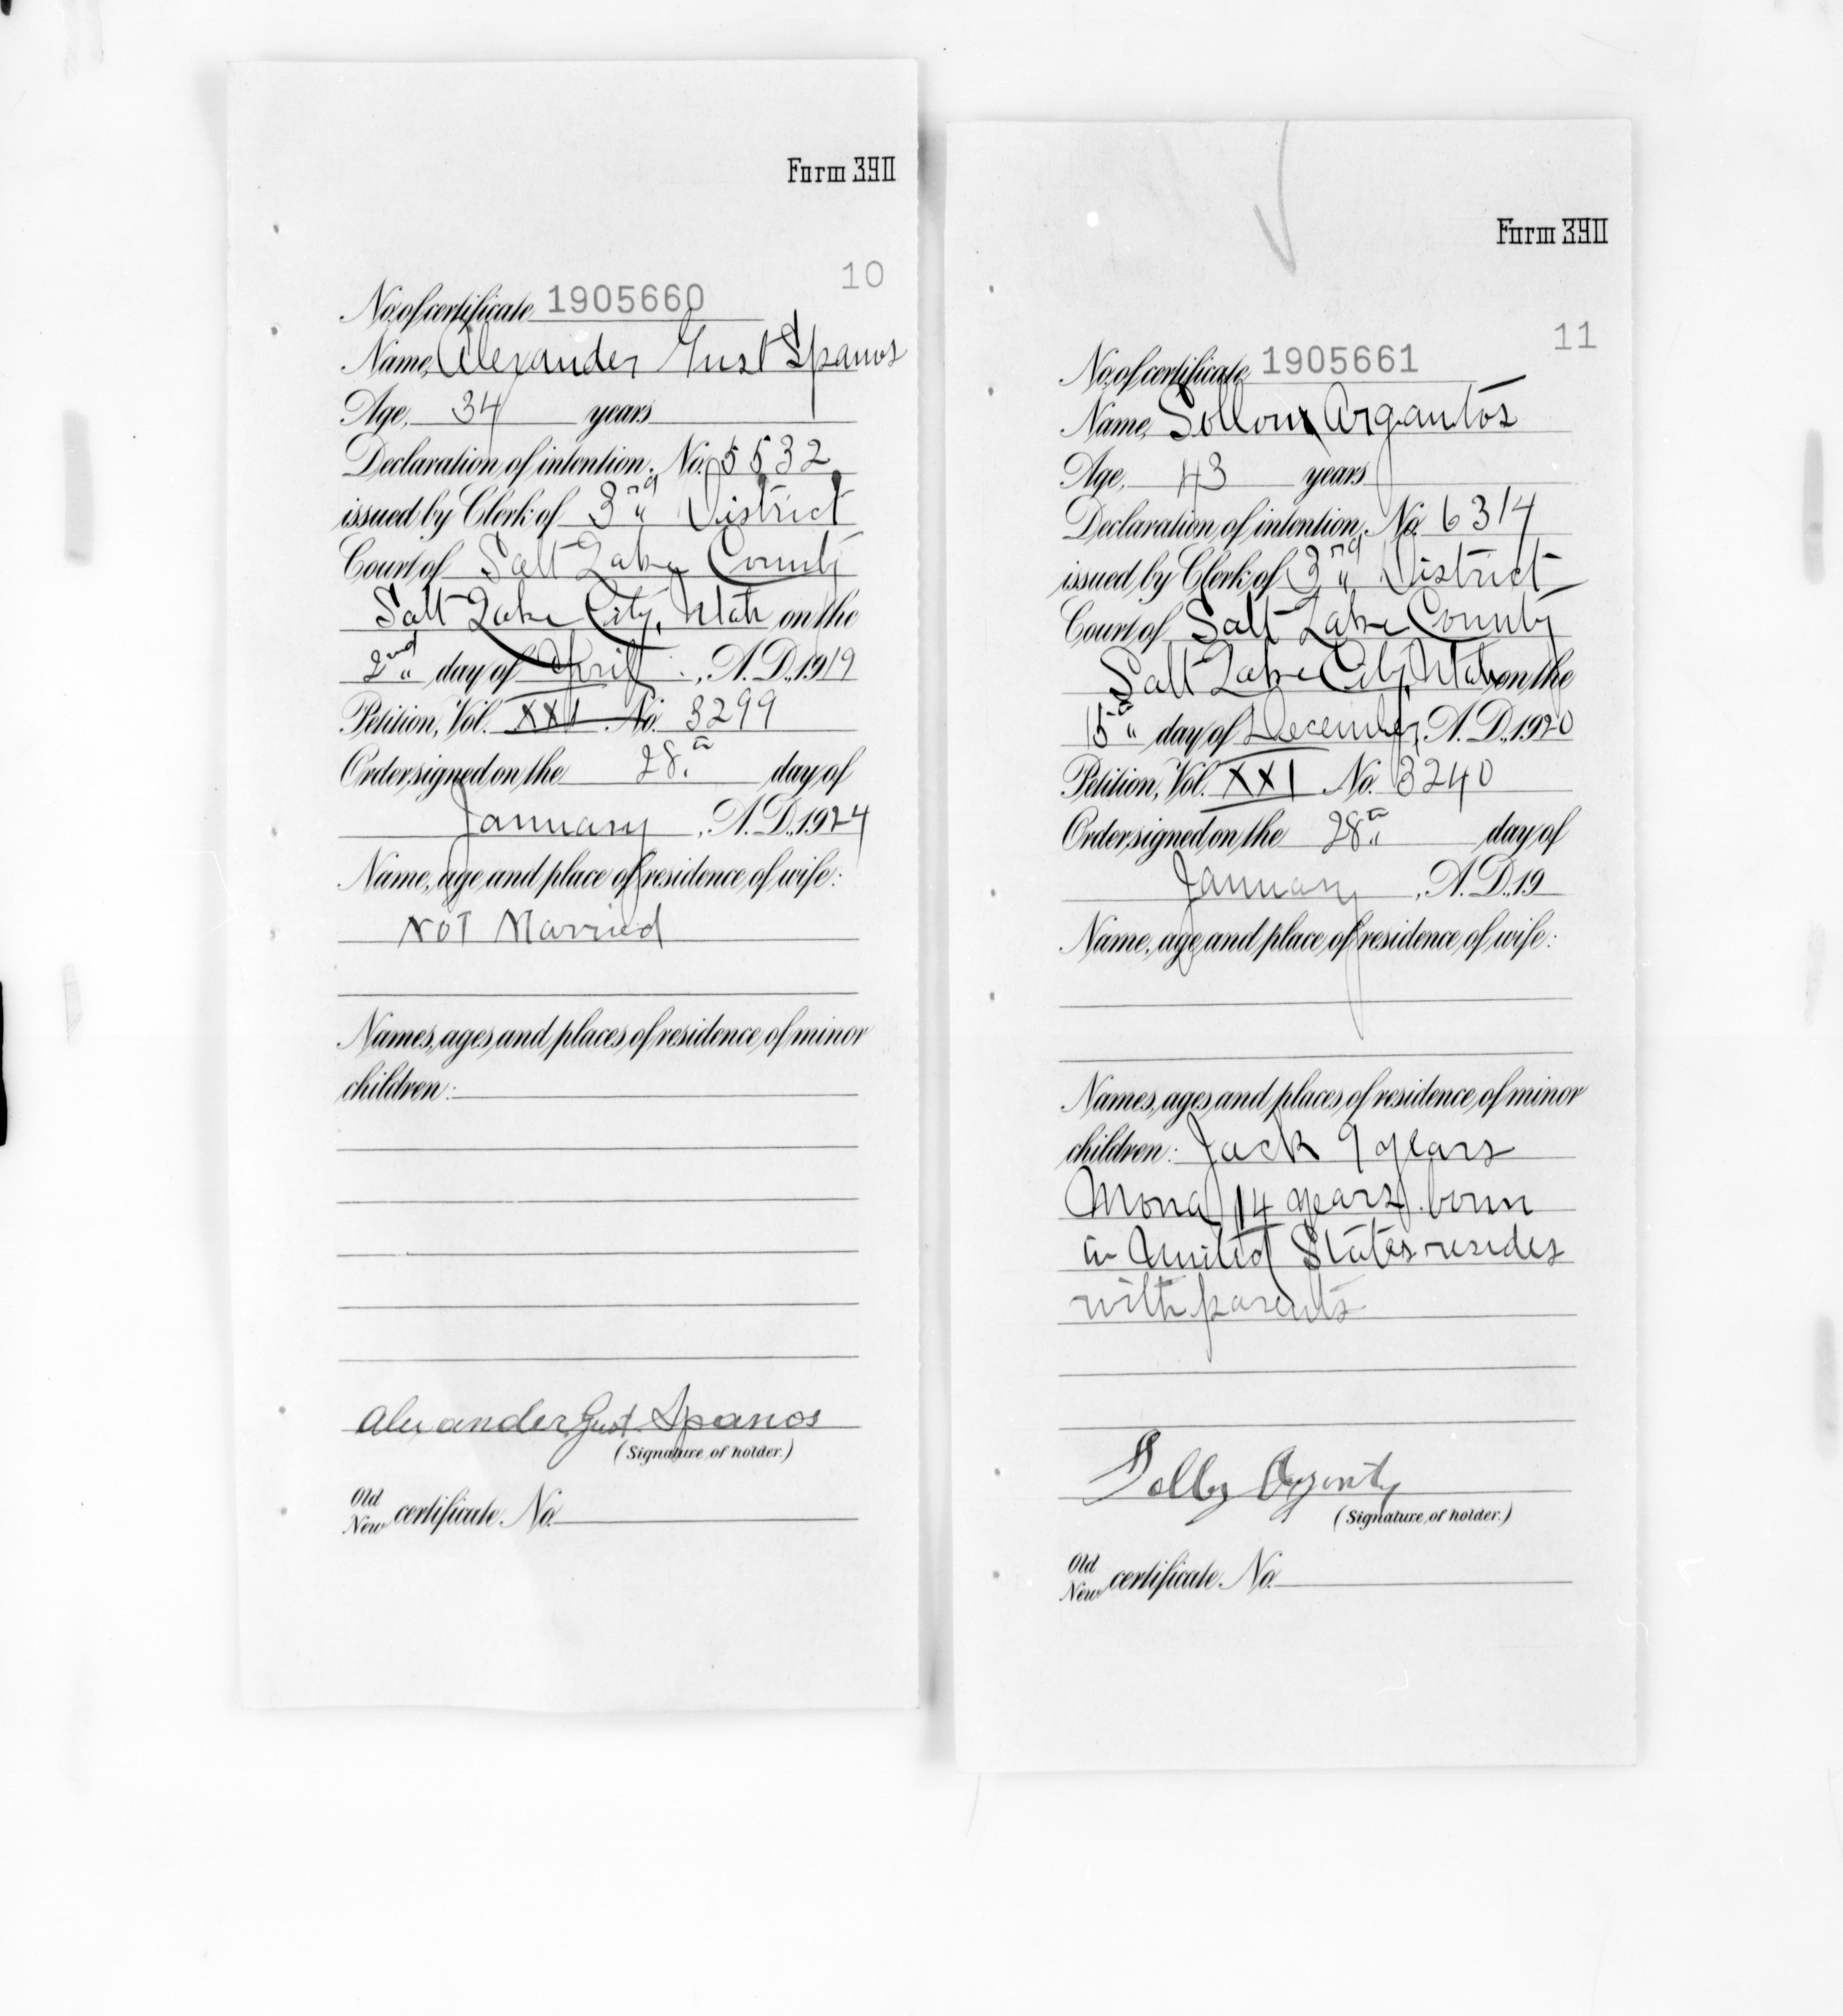 Form 390
10
No. of certificate 1905660
Name, Alexander Gust Spanos
Age, 34 years
Declaration of intention, No. 5532
issued by Clerk of 3rd District
Court of Salt Lake County
Salt Lake City, Utah on the
2nd day of April, A.D., 1919
Petition, Vol. XXI No. 3299
Order signed on the 28th day of
January, A.D., 1924
Name, age and place of residence of wife:
Not Married
Names, ages and places of residence of minor
children:
Alexander Gust Spanos
(Signature of holder.)
Old
New certificate No.
Form 390
11
No. of certificate 1905661
Name, Argantos
Age, 43 years
Declaration of intention, No. 6314
issued by Clerk of 3rd District
Court of Salt Lake County
Salt Lake City, Utah on the
15th day of December, A.D., 1920
Petition, Vol. XXI No. 3240
Order signed on the 28th day of
January, A.D., 19
Name, age and place of residence of wife:
Names, ages and places of residence of minor
children: Jack 9 years
Mona 14 years born
in United States resides
with parents
(Signature of holder.)
Old
New certificate No.